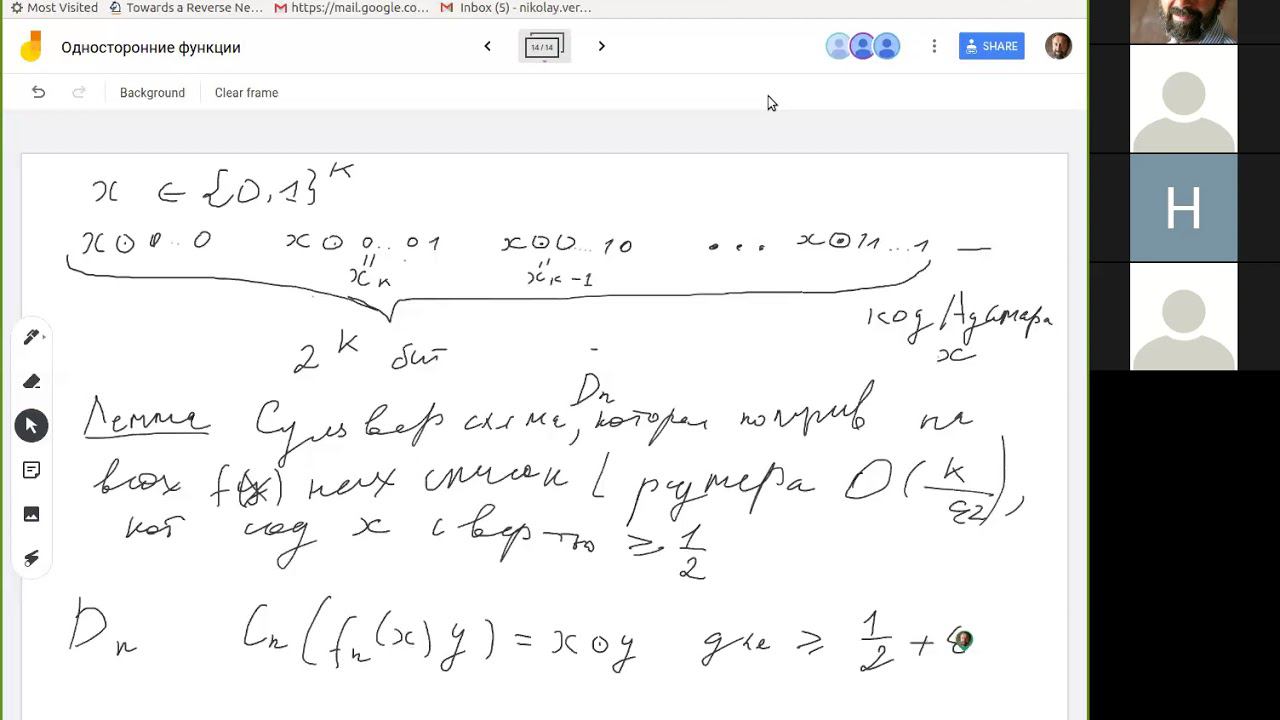 Most Visited Towards a Reverse Ne… https://mail.google.co… Inbox (5) - nikolay.ver…
Односторонние функции 14 / 14 SHARE
Background Clear frame
x ∈ {0,1}^k
x⊙0..0 x⊙0..01 x⊙0..10 ... x⊙11...1 —
x_k x_{k-1}
код Адамара
x
2^k бит
D_n
Лемма Сущ вер схема, которая получив на
вход f(x) нек список L размера O(k/ε2),
кот сод x с вер-тью ≥ 1/2
D_n C_n(f_n(x) y) = x⊙y для ≥ 1/2 + ε
H